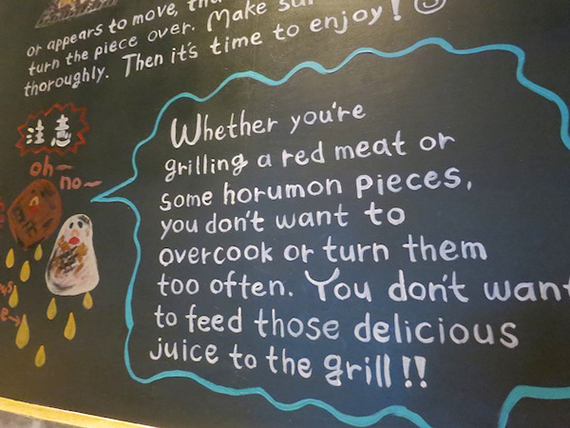 or appears to move,
turn the piece over. Make
thoroughly. Then it's time to enjoy!
注意
oh~
no~
Whether you're
grilling a red meat or
some horumon pieces,
you don't want to
overcook or turn them
too often. You don't want
to feed those delicious
juice to the grill!!